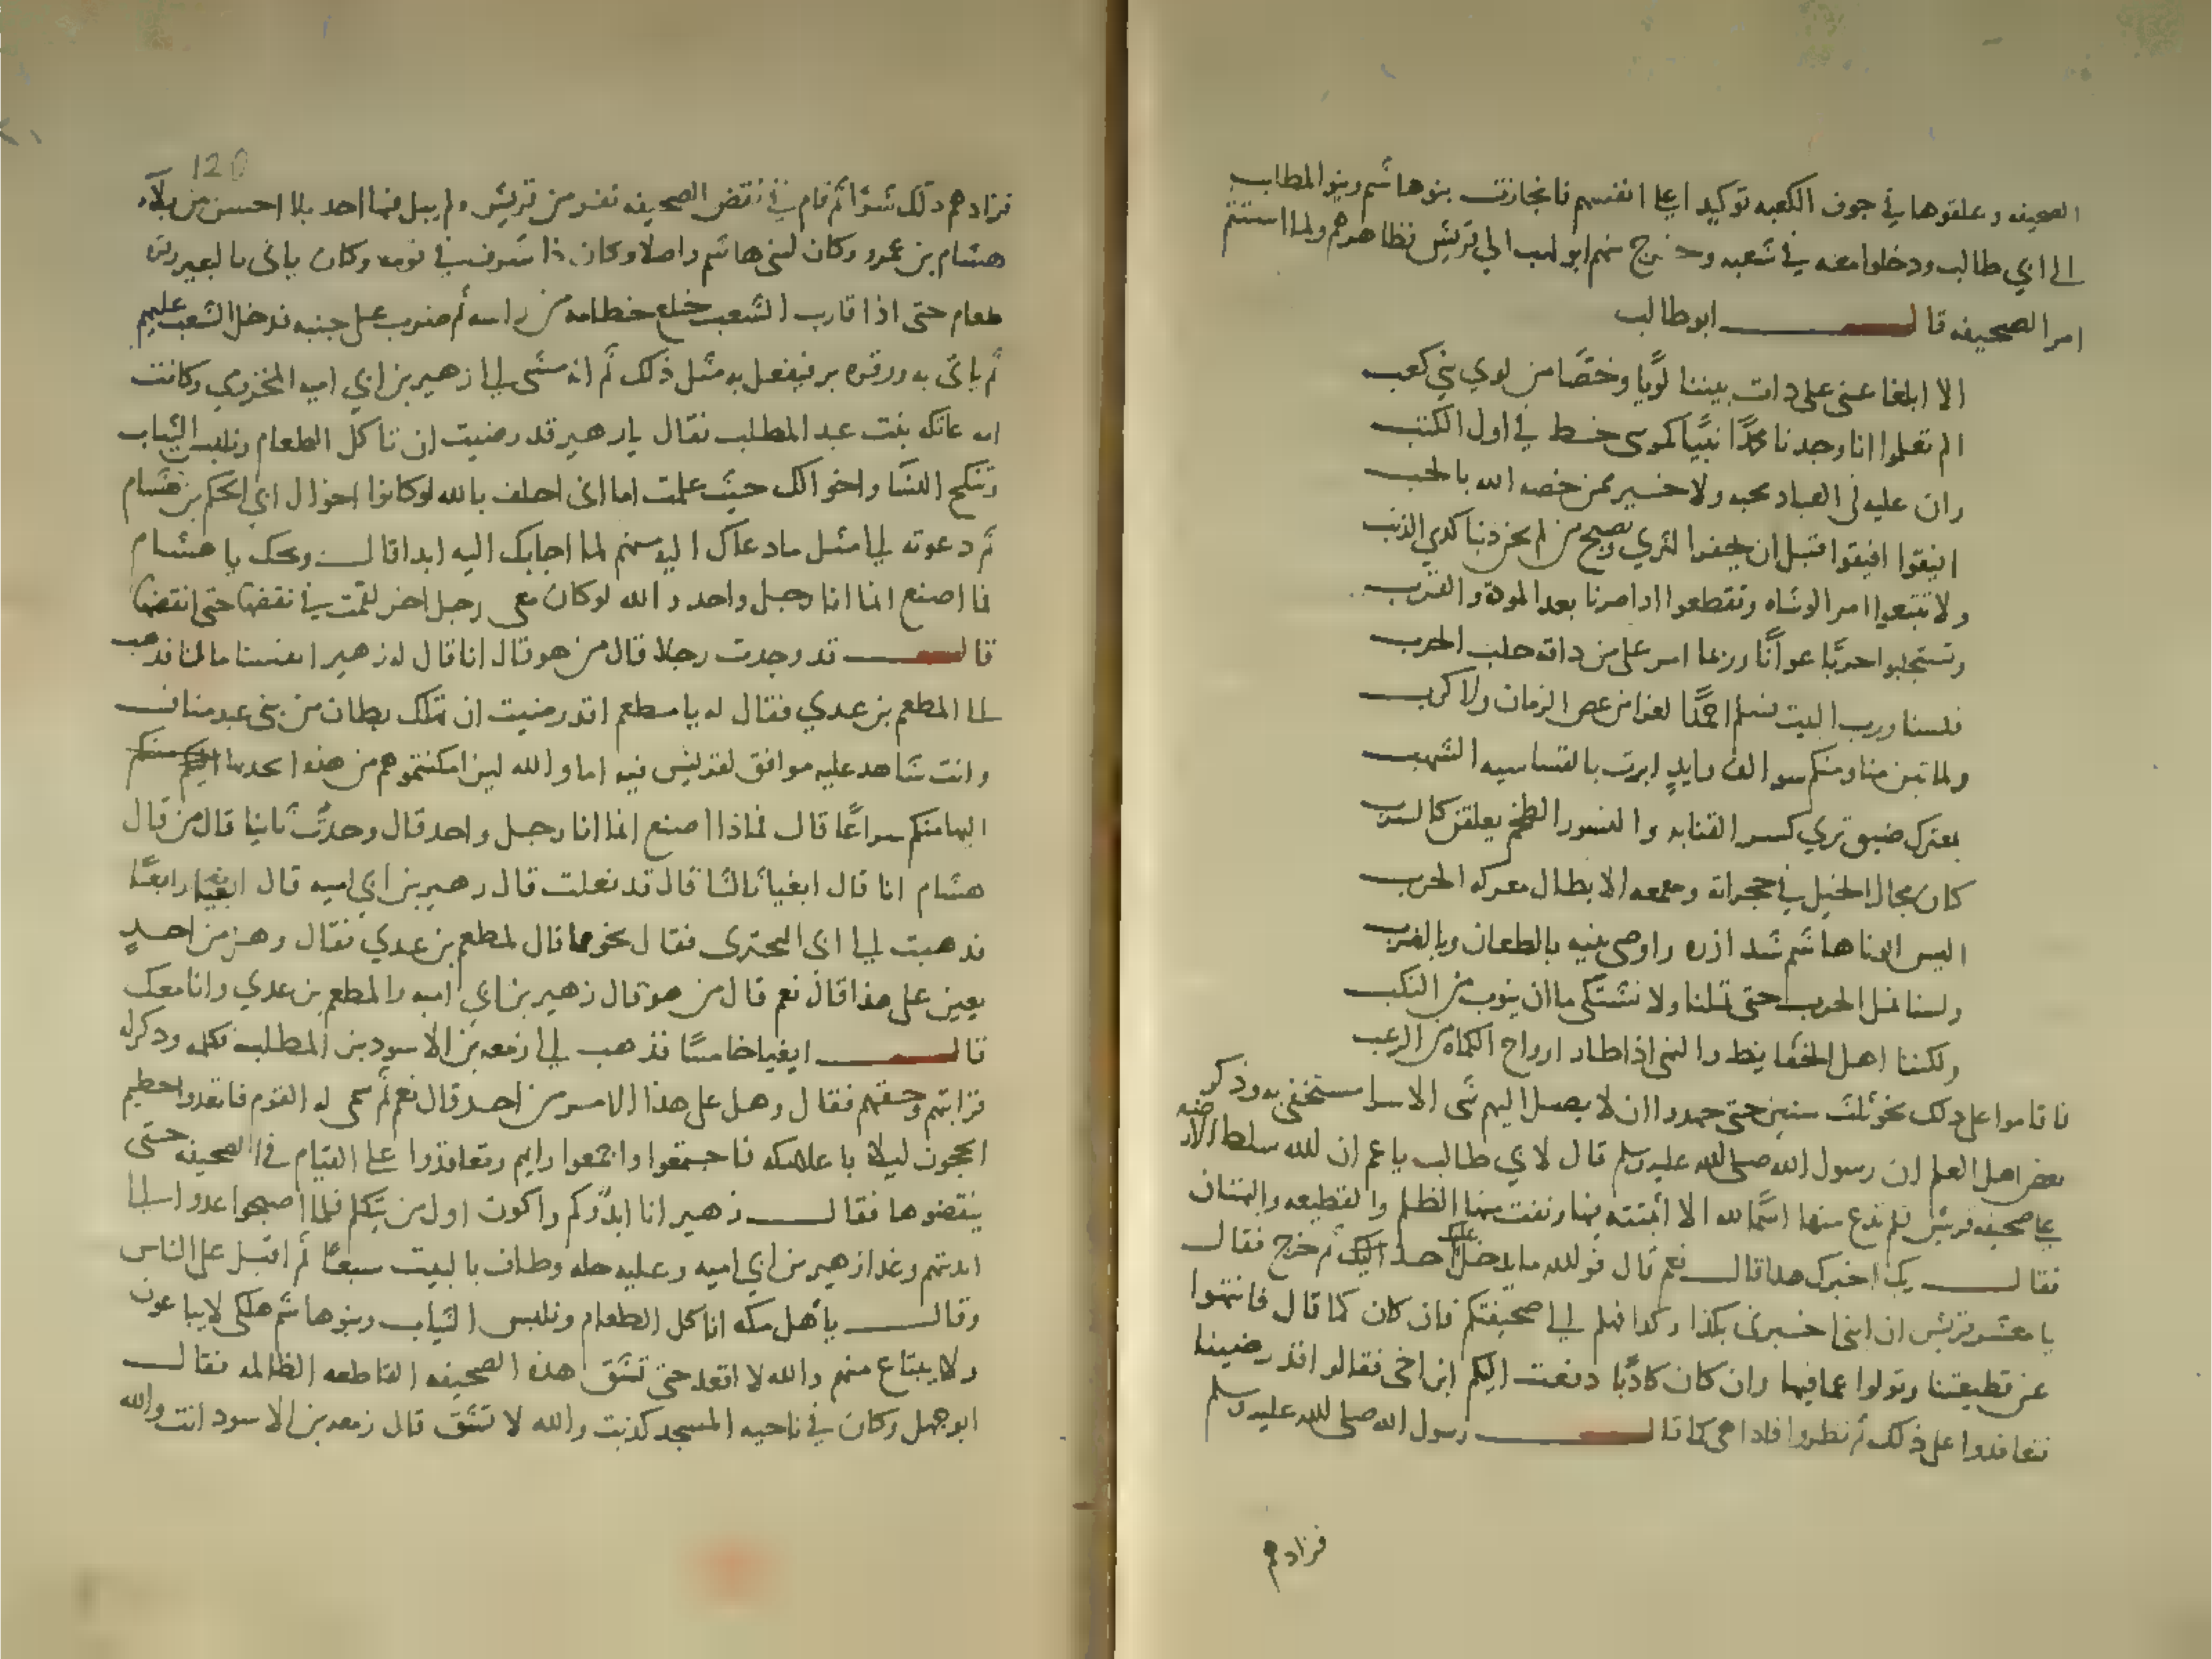 الصحيفه وعلقوها في جوف الكعبه توكيدا على انفسهم فانحازت بنو هاشم وبنو المطلب
الى ابي طالب ودخلوا معه في شعبه وخرج منهم ابو لهب الى قريش فظاهرهم ولما استتم
امر الصحيفه قال ابو طالب
الا ابلغا عني على دات بيننا لويا وخصا من لوي بني كعب
الم تعلموا انا وجدنا محمدا نبيا كموسى خط في اول الكتب
وان عليه في العباد محبه ولا خير ممن خصه الله بالحب
افيقوا افيقوا قبل ان يحفر الثري ويصبح من لم يجن ذنبا كذي الذنب
ولا تتبعوا امر الوشاه وتقطعوا اواصرنا بعد الموده والقرب
وتستجلبوا حربا عوانا وربما امر على من ذاقه حلب الحرب
فلسنا ورب البيت نسلم احمدا لعزا من عض الزمان ولا كرب
ولما تبن منا ومنكم سوالف وايد ابرت بالقساسيه الشهب
بمعترك ضيق تري كسر القنا به والنسور الطخم يعلقن كالسرب
كان مجال الخيل في حجراته ومعمعه الابطال معركه الحرب
اليس ابونا هاشم شد ازره واوصى بنيه بالطعان وبالضرب
ولسنا نمل الحرب حتى تملنا ولا نشتكي ما ان ينوب من النكب
ولكننا اهل الحفايظ والنهى اذا طار ارواح الكماه من الرعب
فاقاموا على ذلك نحو ثلث سنين حتى جهدوا ان لا يصل اليهم شي الا سرا مستخفى به وذكر
بعض اهل العلم ان رسول الله صلى الله عليه وسلم قال لابي طالب يا عم ان الله سلط الارضه
على صحيفه قريش فلم تدع منها اسما لله الا اثبتته فيها ونفت منها الظلم والقطيعه والبهتان
فقال ربك اخبرك هذا قال نعم قال فو الله ما يدخل عليك احد ثم خرج فقال
يا معشر قريش ان ابن اخي اخبرني بكذا وكذا فهلم الى صحيفتكم فان كان كما قال فانتهوا
عن قطيعتنا وتولوا عما فيها وان كان كاذبا دفعت اليكم ابن اخي فقالوا قد رضينا
فتعاقدوا على ذلك ثم نظروا فاذا هي كما قال رسول الله صلى الله عليه وسلم
فزادهم
120
فزادهم ذلك شرا ثم قام في نقض الصحيفه نفر من قريش ولم يبل فيها احد بلا احسن من بلاء
هشام بن عمرو وكان لبني هاشم واصلا وكان ذا شرف في قومه وكان ياتي بالبعير
طعام حتى اذا قارب الشعب خلع خطامه من راسه ثم ضرب على جنبه فدخل الشعب عليهم
ثم ياتي به وبر فيفعل به مثل ذلك ثم انه مشى الى زهير بن ابي اميه المخزومي وكانت
امه عاتكه بنت عبد المطلب فقال يا زهير قد رضيت ان تاكل الطعام وتلبس الثياب
وتنكح النسا واخوالك حيث علمت اما اني احلف بالله لو كانوا اخوال ابي الحكم بن هشام
ثم دعوته الى مثل ما دعاك اليه منهم لما اجابك اليه ابدا قال ويحك يا هشام
فما اصنع انما انا رجل واحد والله لو كان معي رجل اخر لقمت في نقضها حتى انقضها
قال قد وجدت رجلا قال من هو قال انا قال له زهير ابغنا ثالثا فذهب
الى المطعم بن عدي فقال له يا مطعم اقد رضيت ان تهلك بطان من بني عبد مناف
وانت شاهد عليه موافق لقريش فيه اما والله لين امكنتموهم من هذه لتجدنهم
اليها منكم سراعا قال فماذا اصنع انما انا رجل واحد قال وجدت ثانيا قال من قال
هشام انا قال ابغنا ثالثا قال قد فعلت قال زهير بن ابي اميه قال ابغنا رابعا
فذهبت الى ابي البختري فقال نحو ما قال لمطعم بن عدي فقال وهل من احد
يعين على هذا قال نعم قال من هو قال زهير بن ابي اميه والمطعم بن عدي وانا معك
قال ابغنا خامسا فذهب الى زمعه بن الاسود بن المطلب فكلمه وذكر له
قرابتهم وحقهم فقال وهل على هذا الامر من احد قال نعم ثم سمى له القوم فاتعدوا حطيم
الحجون ليلا باعلا مكه فاجتمعوا واجمعوا رايهم وتعاقدوا على القيام في الصحيفه حتى
ينقضوها فقال زهير انا ابدؤكم واكون اول من يتكلم فلما اصبحوا غدوا الى
انديتهم وغدا زهير بن ابي اميه وعليه حله وطاف بالبيت سبعا ثم اقبل على الناس
وقال يا اهل مكه اناكل الطعام ونلبس الثياب وبنو هاشم هلكى لا يباعون
ولا يبتاع منهم والله لا اقعد حتى تشق هذه الصحيفه القاطعه الظالمه فقال
ابو جهل وكان في ناحيه المسجد كذبت والله لا تشق قال زمعه بن الاسود انت والله